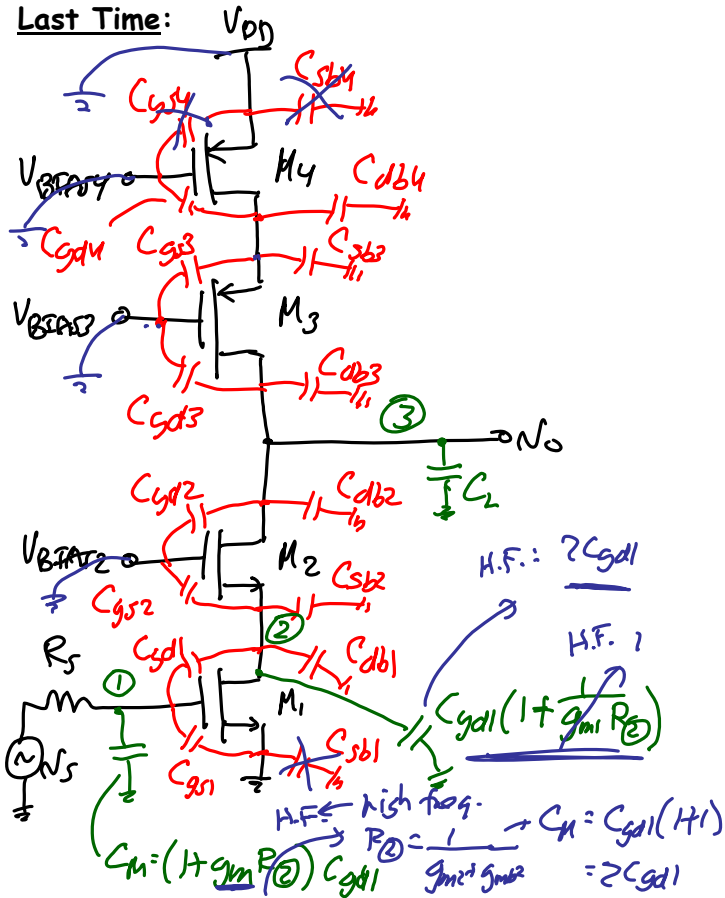 Last Time:
V_DD
C_gs4
C_sb4
V_BIAS4
M4
C_db4
C_gd4
C_gs3
C_sb3
V_BIAS3
M3
C_db3
C_gd3
③
N_o
C_L
C_gd2
C_db2
V_BIAS2
M2
H.F.: 2C_gd1
C_gs2
C_sb2
②
H.F. 1
R_S
C_gd1
C_db1
①
M1
C_gd1(1+1/(g_m1 R_②))
N_s
C_gs1
C_sb1
H.F. ← high freq.
C_M=(1+g_m R_②) C_gd1
R_②=1/(g_m2+g_mb2) → C_M = C_gd1(1+1)
=2C_gd1